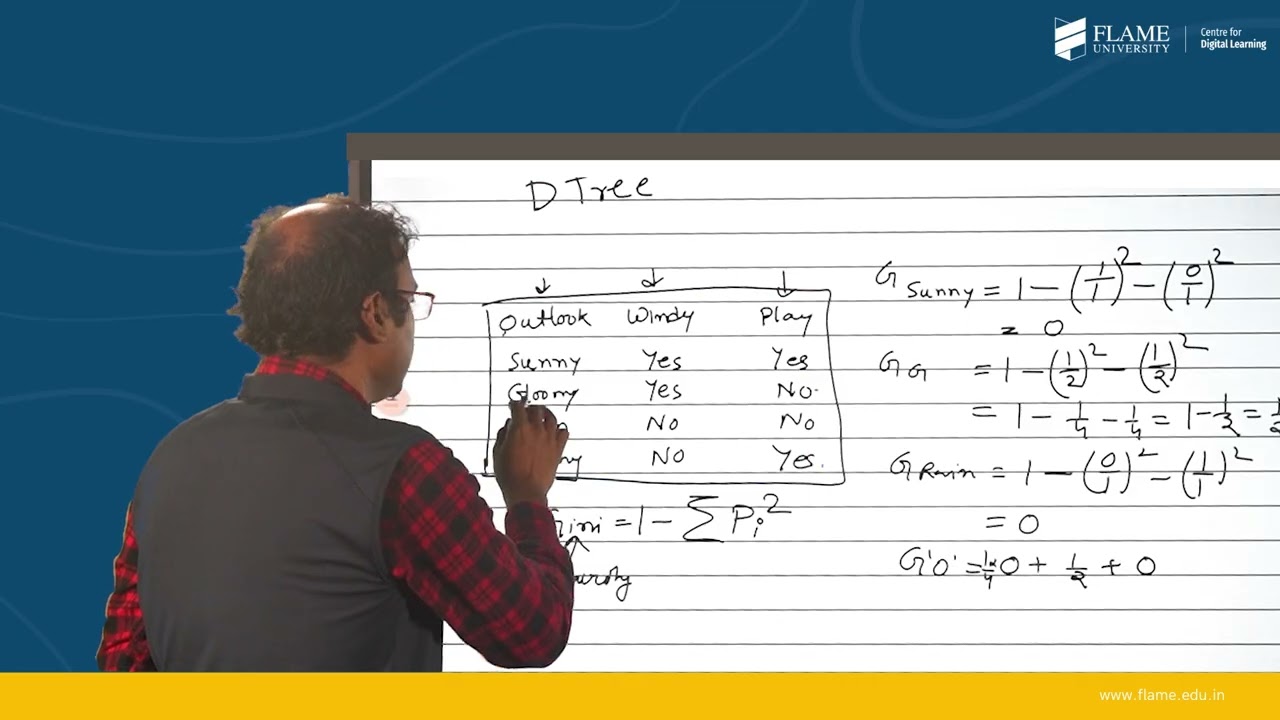 FLAME
UNIVERSITY
Centre for
Digital Learning
D Tree
Outlook Windy Play
Sunny Yes Yes
Gloomy Yes No
No No
No Yes
= 1 - ∑ Pi²
G Sunny = 1 - (1/1)² - (0/1)²
= 0
G G = 1 - (1/2)² - (1/2)²
= 1 - 1/4 - 1/4 = 1 - 1/2 =
G Rain = 1 - (0/1)² - (1/1)²
= 0
G'O' = 1/4 × 0 + 1/2 + 0
www.flame.edu.in